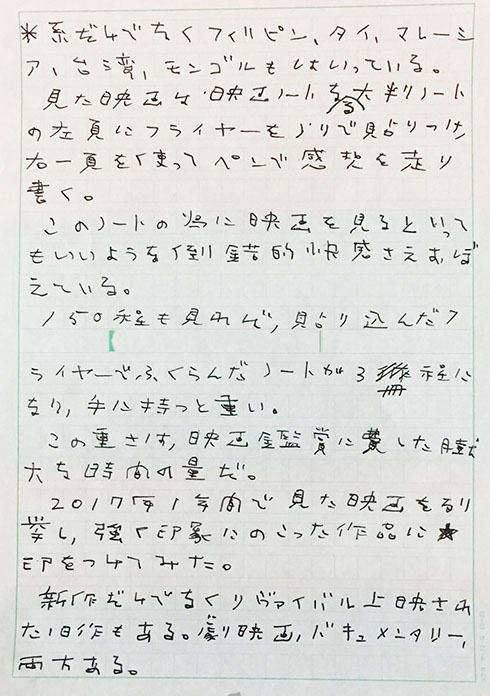 ※系だけでなくフィルピン、タイ、マレーシ
ア、台湾、モンゴルもはいっている。
見た映画は映画ノートなる大判ノート
の左頁にフライヤーをノリで貼りつけ、
右一頁を使ってペンで感想を走り
書く。
このノートの為に映画を見るといって
もいいような倒錯的快感さえおぼ
えている。
150程も見れば、貼り込んだフ
ライヤーでふくらんだノートが3冊程に
なり、手に持つと重い。
この重さは、映画鑑賞に費した膨
大な時間の量だ。
2017年1年間で見た映画を列
挙し、強く印象にのこった作品に★
印をつけてみた。
新作だけでなくリヴァイバル上映され
た旧作もある。劇映画、ドキュメンタリー、
両方ある。